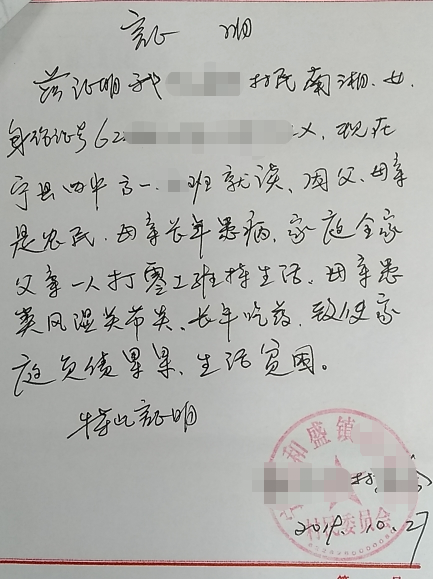 证明
兹证明我 村民南湘,女,
身份证号62 X,现在
宁县四中高一. 班就读、因父、母亲
是农民.母亲长年患病,家庭全家
父亲一人打零工维持生活.母亲患
类风湿关节类、长年吃药.致使家
庭负债累累、生活贫困。
特此证明
和盛镇
村
村民委员会
2019.10.27